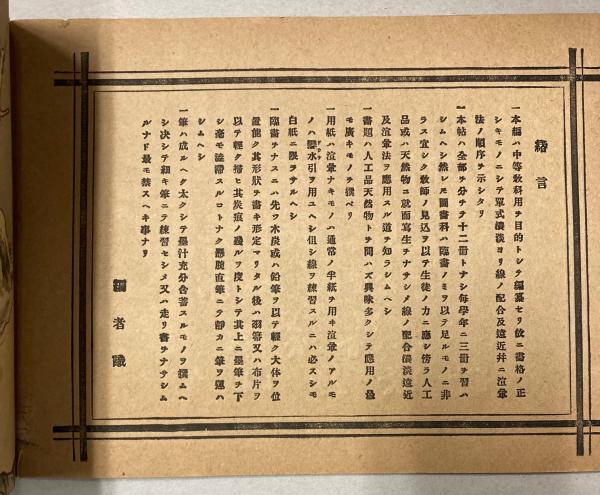 緒言
一本編ハ中等敎科用ヲ目的トシテ編纂セリ故ニ畵格ノ正
シキモノニシテ單式濃淡ヨリ線ノ配合及遠近幷ニ渲暈
法ノ順序ヲ示シタリ
一本帖ハ全部ヲ分チテ十二冊トナシ每學年ニ三冊ヲ習ハ
シムヘシ然レ𪜈圖畵科ハ臨畵ノミヲ以テ足ルモノニ非
ラス宜シク敎師ノ見込ヲ以テ生徒ノ力ニ應シ傍ラ人工
品或ハ天然物ニ就而寫生ヲナサシメ線ノ配合濃淡遠近
及渲暈法ヲ應用スル道ヲ知ラシムヘシ
一畵題ハ人工品天然物トヲ問ハズ興味多クシテ應用ノ最
モ廣キモノヲ撰ベリ
一用紙ハ渲暈ナキモノハ通常ノ半紙ヲ用ヰ渲暈ノアルモ
ノハ礬水引ヲ用ユヘシ但シ線ヲ練習スルニハ必スシモ
白紙ニ限ラサルヘシ
一臨畵ヲナスニハ先ツ木炭或ハ鉛筆ヲ以テ輕ク大体ヲ位
置能ク其形狀ヲ畵キ形定マリタル後ハ羽箒又ハ布片ヲ
以テ輕ク掃ヒ其炭痕ノ殘ルヲ度トシテ其上ニ墨筆ヲ下
シ毫モ澁滯スルコトナク懸腕直筆ニテ靜カニ筆ヲ運ハ
シムヘシ
一筆ハ成ルヘク太クシテ墨汁充分含蓄スルモノヲ撰ムヘ
シ决シテ細キ筆ニテ練習セシメ又ハ走リ畵ヲナサシム
ルナド最モ禁スヘキ事ナリ
編者識